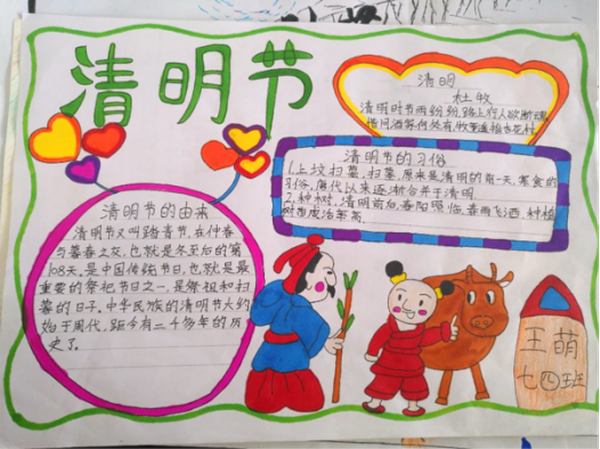 清明节
清明
杜牧
清明时节雨纷纷,路上行人欲断魂
借问酒家何处有,牧童遥指杏花村
清明节的习俗
1.上坟扫墓,扫墓,原来是清明的前一天,寒食的
习俗,唐代以来逐渐合并于清明.
2.种树,清明前后,春阳照临,春雨飞洒,种植
树苗成活率高.
清明节的由来
清明节又叫踏青节,在仲春
与暮春之交,也就是冬至后的第
108天,是中国传统节日,也就是最
重要的祭祀节日之一,是祭祖和扫
墓的日子.中华民族的清明节大约
始于周代,距今有二千多年的历
史了.
王萌
七四班